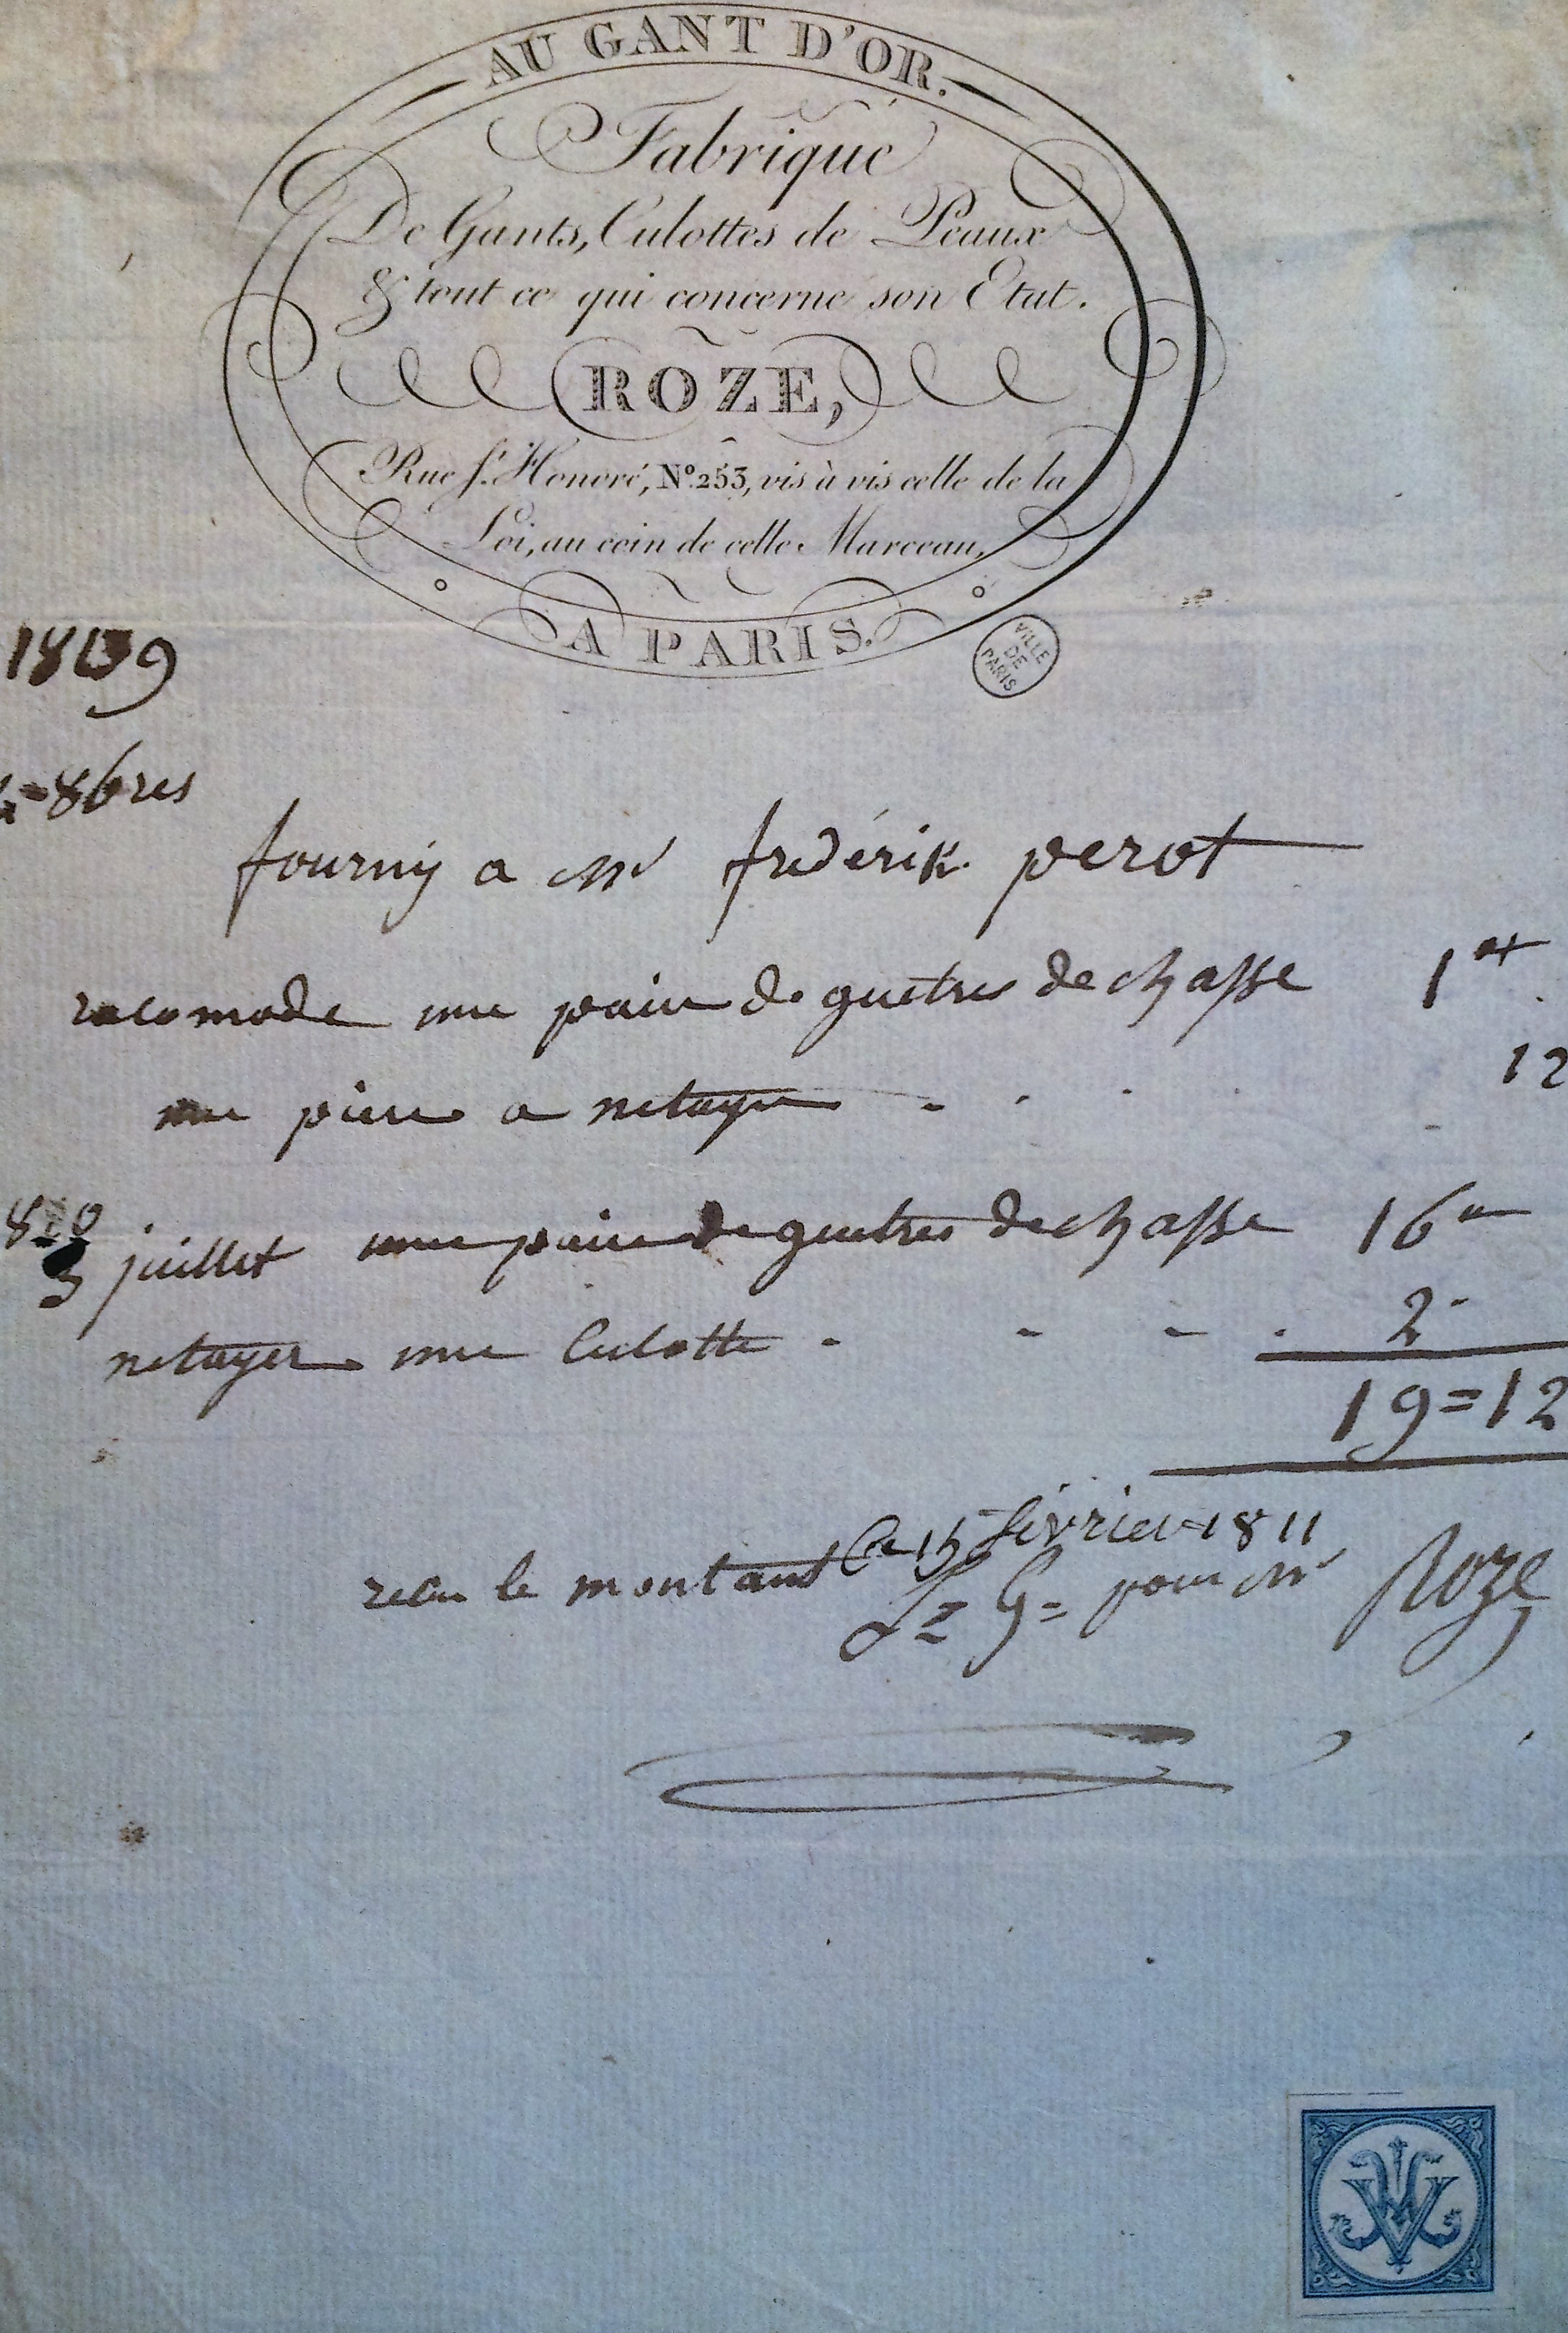 AU GANT D'OR.
Fabrique
De Gants, Culottes de Peaux
& tout ce qui concerne son Etat.
ROZE,
Rue St. Honoré, No. 253, vis à vis celle de la
Loi, au coin de celle Marceau,
A PARIS.
VILLE
DE
PARIS
1809
8bres
fourny a Mr frédérik perot
racomode une paire de guetres de chasse 1
une piere a netayer 12
juillet une paire de guetres de chasse 16
netayer une Culotte 2
19=12
recu le montant Ce 15 février 1811
pour Mr Roze